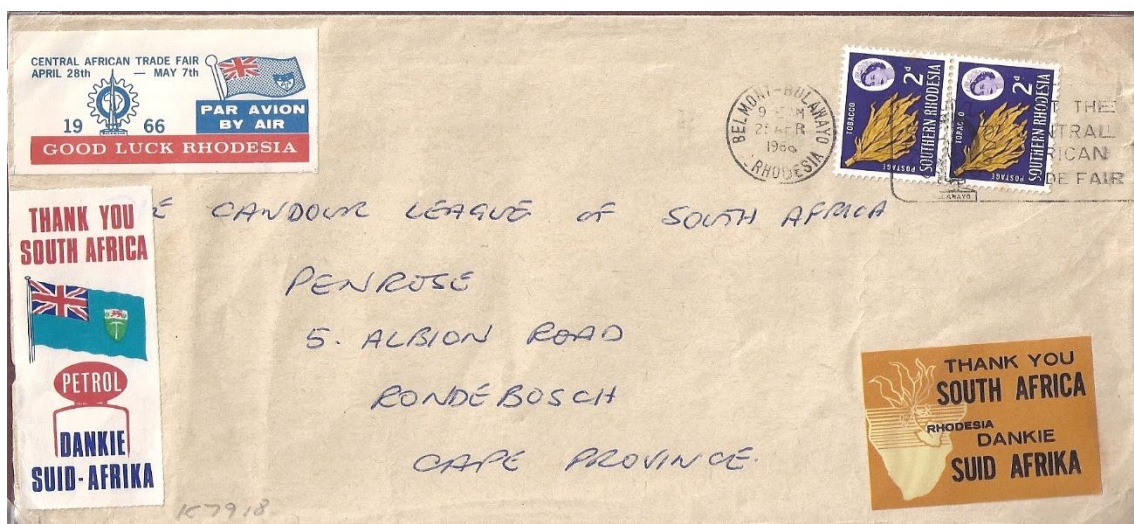 CENTRAL AFRICAN TRADE FAIR
APRIL 28th — MAY 7th
19 66
PAR AVION
BY AIR
GOOD LUCK RHODESIA
BELMONT-BULAWAYO
1966
RHODESIA
2d
TOBACCO
POSTAGE
SOUTHERN RHODESIA
2d
POSTAGE
SOUTHERN RHODESIA
THE
DE FAIR
THANK YOU
SOUTH AFRICA
PETROL
DANKIE
SUID-AFRIKA
E CANDOUR LEAGUE OF SOUTH AFRICA
PENROSE
5. ALBION ROAD
RONDEBOSCH
CAPE PROVINCE.
THANK YOU
SOUTH AFRICA
RHODESIA
DANKIE
SUID AFRIKA
K7918